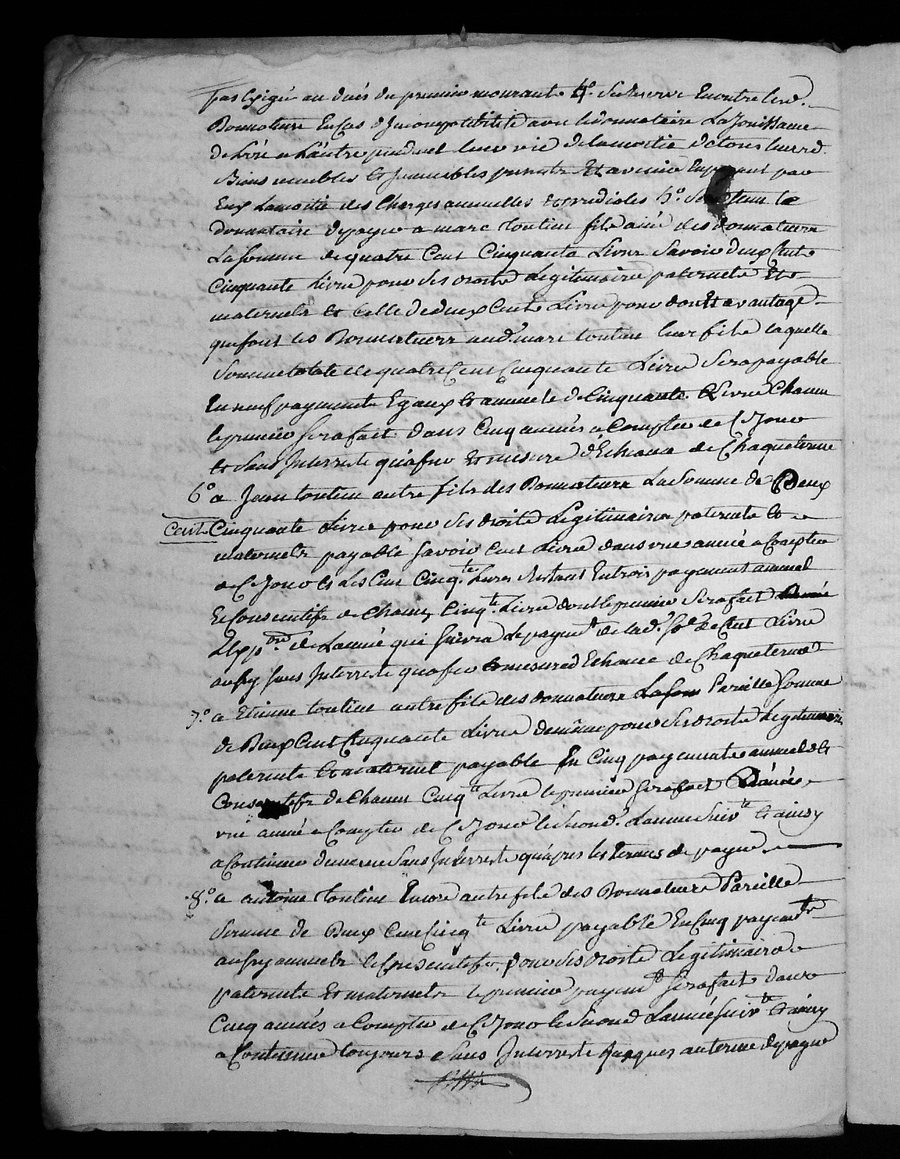 pas Exigée au décès du premier mourant 4.° Se Reserve Encontre lesd.
Donnateurs En Cas d'Incompatibilité avec le donnataire La Jouissance
de L'un a L'autre pendent leur vie de la moitie de tous leurs d.
Biens meubles et Immeubles presents Et avenir En payent par
Eux La moitie des Charges annuelles et 5.° Sera tenu le
donnataire de payer a marc toutien fils ainé des donnateurs
La Somme de quatre Cent Cinquante Livres Savoir deux Cent
Cinquante Livres pour Ses droits Legitimaires paternels Et
maternels et Celle de deux Cent Livres pour don Et avantage
que font les Donnateurs aud. marc toutien leur fils laquelle
Somme totale de quatre Cent Cinquante Livres Sera payable
En neuf payments Egaux et annuels de Cinquante Livres Chacun
le premier Sera fait dans Cinq années a Compter de Ce Jour
et Sans Interrets qu'a fur et mesure d'Echeance de Chaque terme
6° a Jean toutien autre fils des Donnateurs La Somme de Deux
Cent Cinquante Livres pour Ses droits Legitimaires paternels et
maternels payable Savoir Cent Livres dans une année a Compter
de Ce Jour et Les Cent Cinq.te Livres Restant En trois payements annuels
Et Consecutifs de Chacun Cinq.te Livres dont le premier Sera fait
de L'année qui Suivra le payem.t de lad. So.e de Cent Livres
aussy Sans Interrets qu'a fur et mesure d'Echeance de Chaque terme
7.° a Etienne toutien autre fils des donnateurs La som Pareille Somme
de Deux Cent Cinquante Livres de même pour Ses droits Legitimaires
paternels et maternel payable En Cinq payements annuels et
Consecutifs de Chacun Cinq.te Livres le premier Sera fait
une année a Compter de Ce Jour le Second L'année Suiv.te Et ainsy
a Continuer de même Sans Interrets qu'apres les termes de payer
8.° a antoine toutien Encore autre fils des Donnateurs Pareille
Somme de Deux Cent Cinq.te Livres payable En Cinq payem.ts
aussy annuels et Consecutifs, pour Ses droits Legitimaires
paternels et maternels le premier payem.t Sera fait dans
Cinq années a Compter de Ce Jour le Second L'année Suiv.te Et ainsy
a Continuer toujours Sans Interrets Jusques au terme de payer